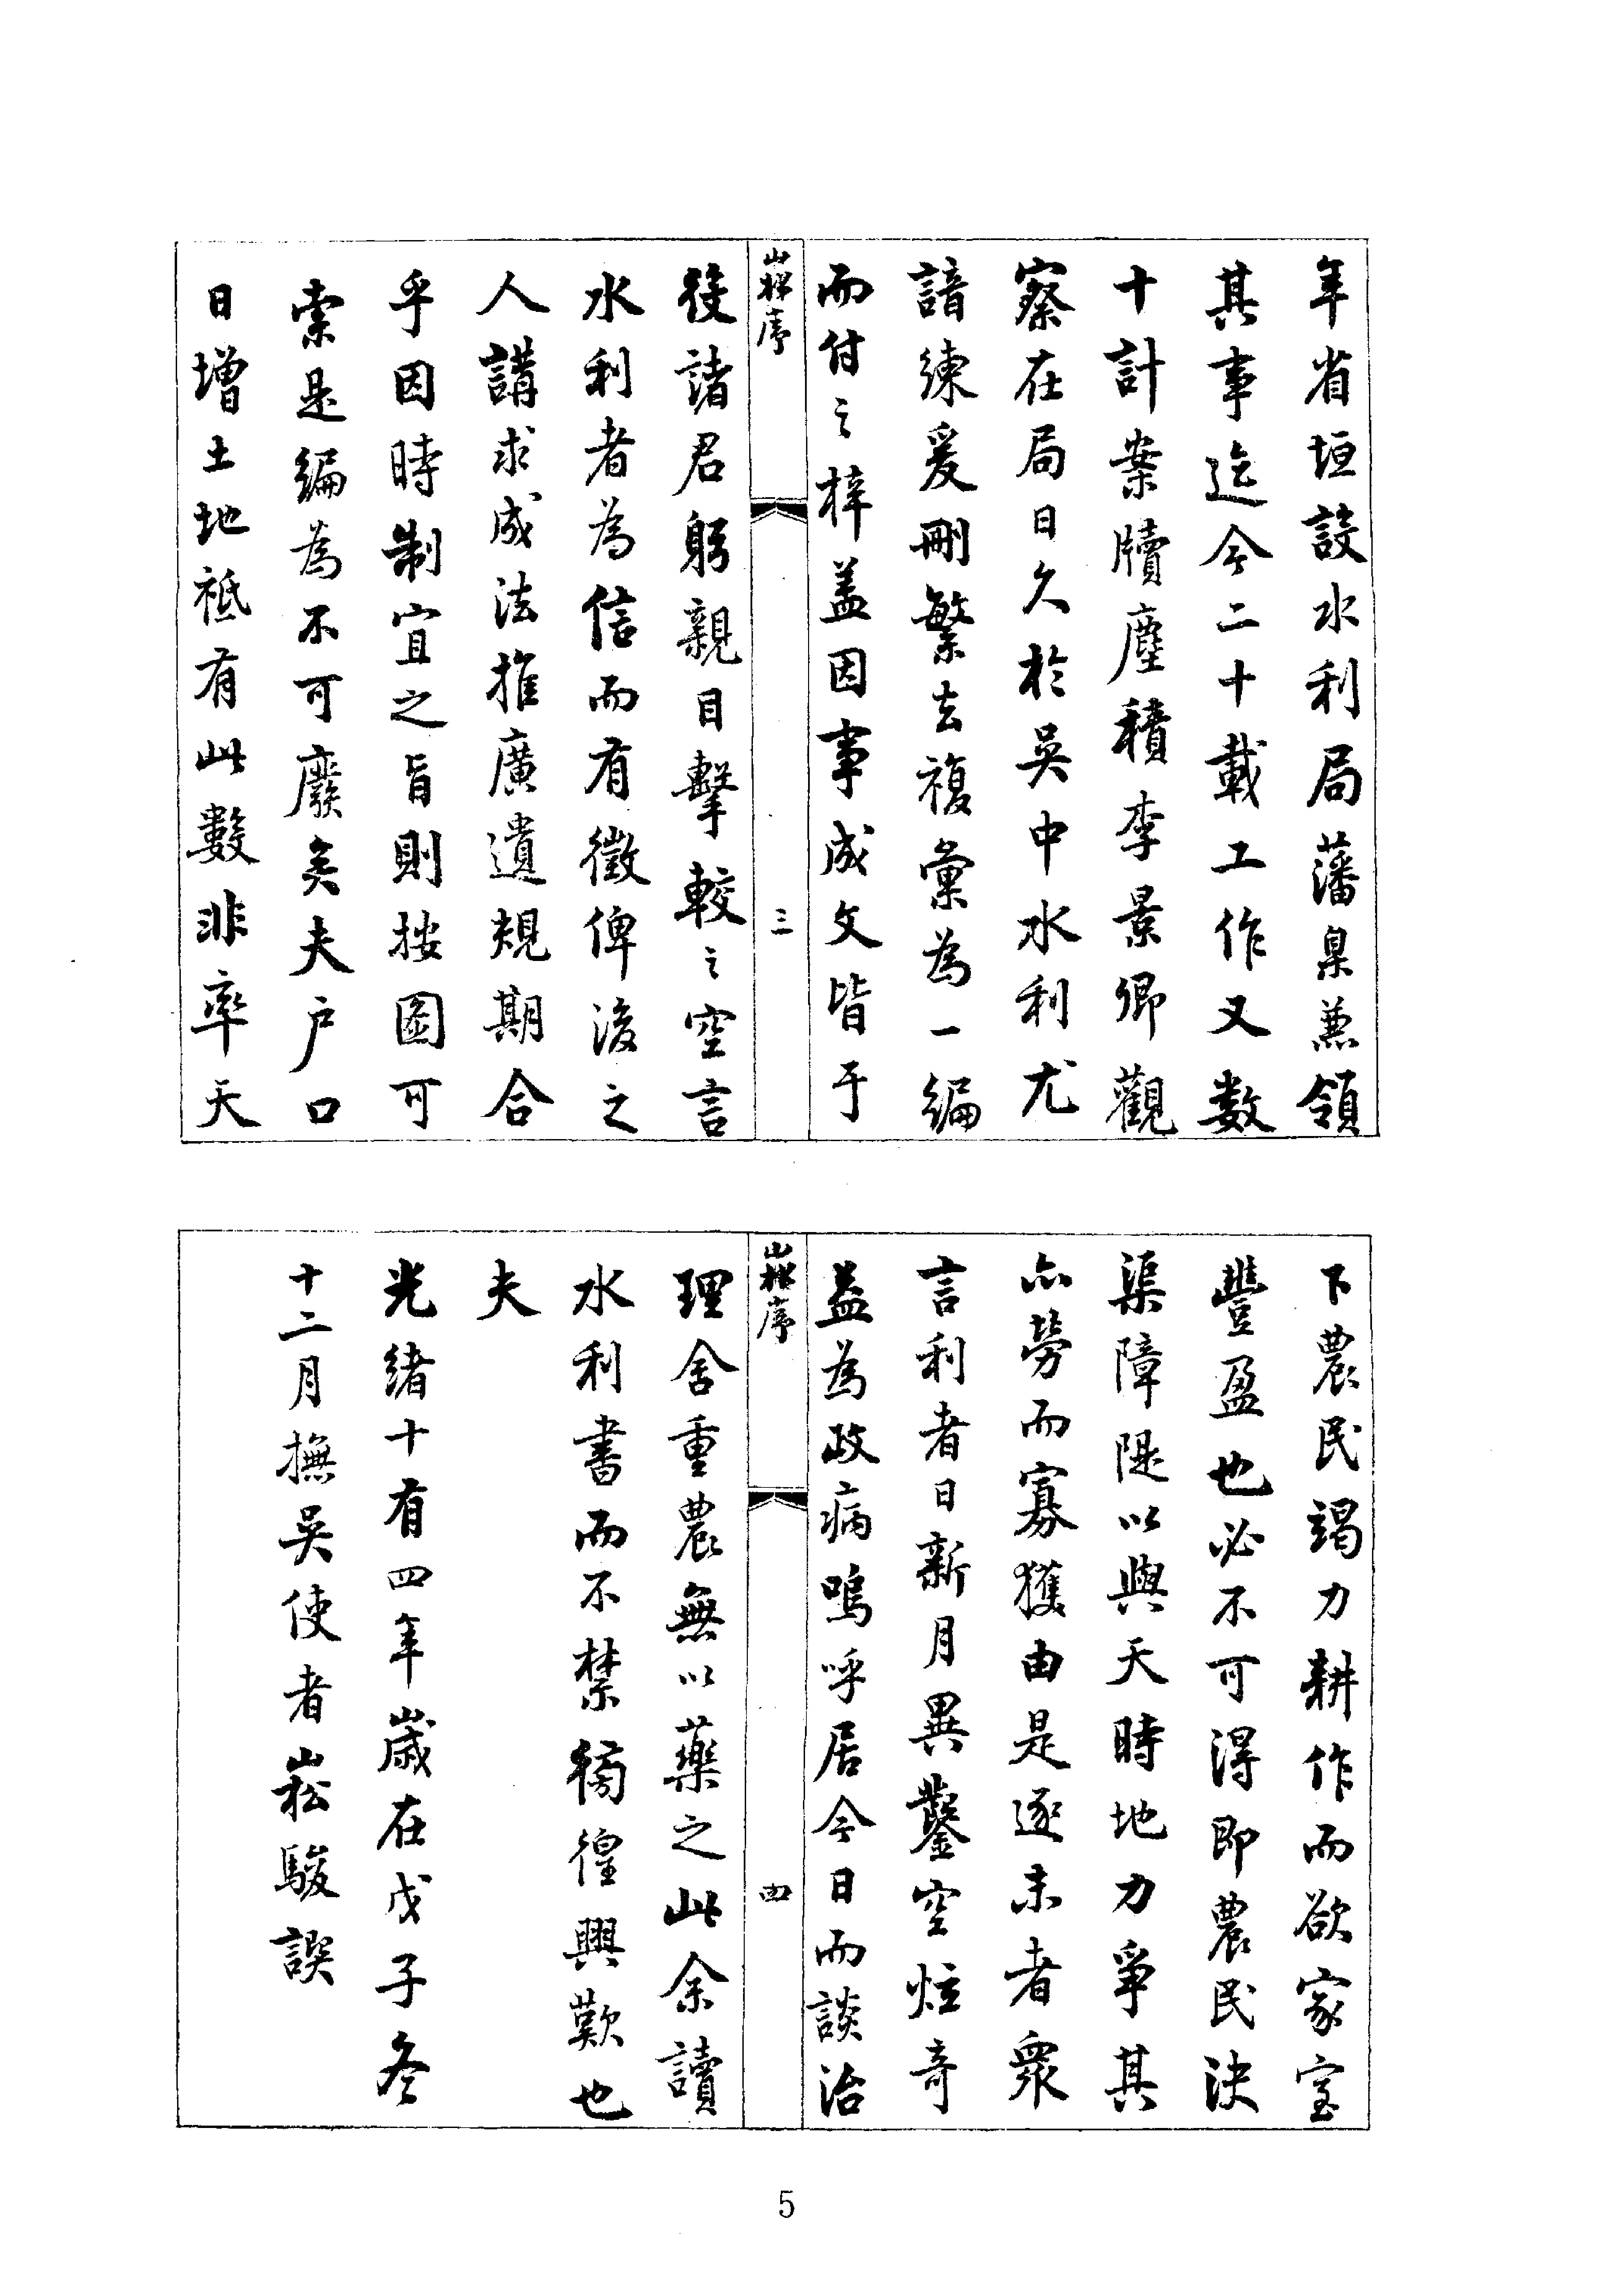 年省垣設水利局藩臬兼領
其事迄今二十載工作又數
十計案牘塵積李景卿觀
察在局日久於吳中水利尤
諳練爰刪繁去複彙為一編
而付之梓蓋因事成文皆于
崧序
三
役諸君躬親目擊較之空言
水利者為信而有徵俾後之
人講求成法推廣遺規期合
乎因時制宜之旨則按圖可
索是編為不可廢矣夫户口
日增土地祗有此數非率天
下農民竭力耕作而欲家室
豐盈也必不可得即農民決
渠障隄以與天時地力爭其
亦勞而寡獲由是逐末者眾
言利者日新月異鑿空炫奇
益為政病嗚呼居今日而談治
崧序
四
理舍重農無以藥之此余讀
水利書而不禁徬徨興歎也
夫
光緒十有四年歲在戊子冬
十二月撫吳使者崧駿譔
5